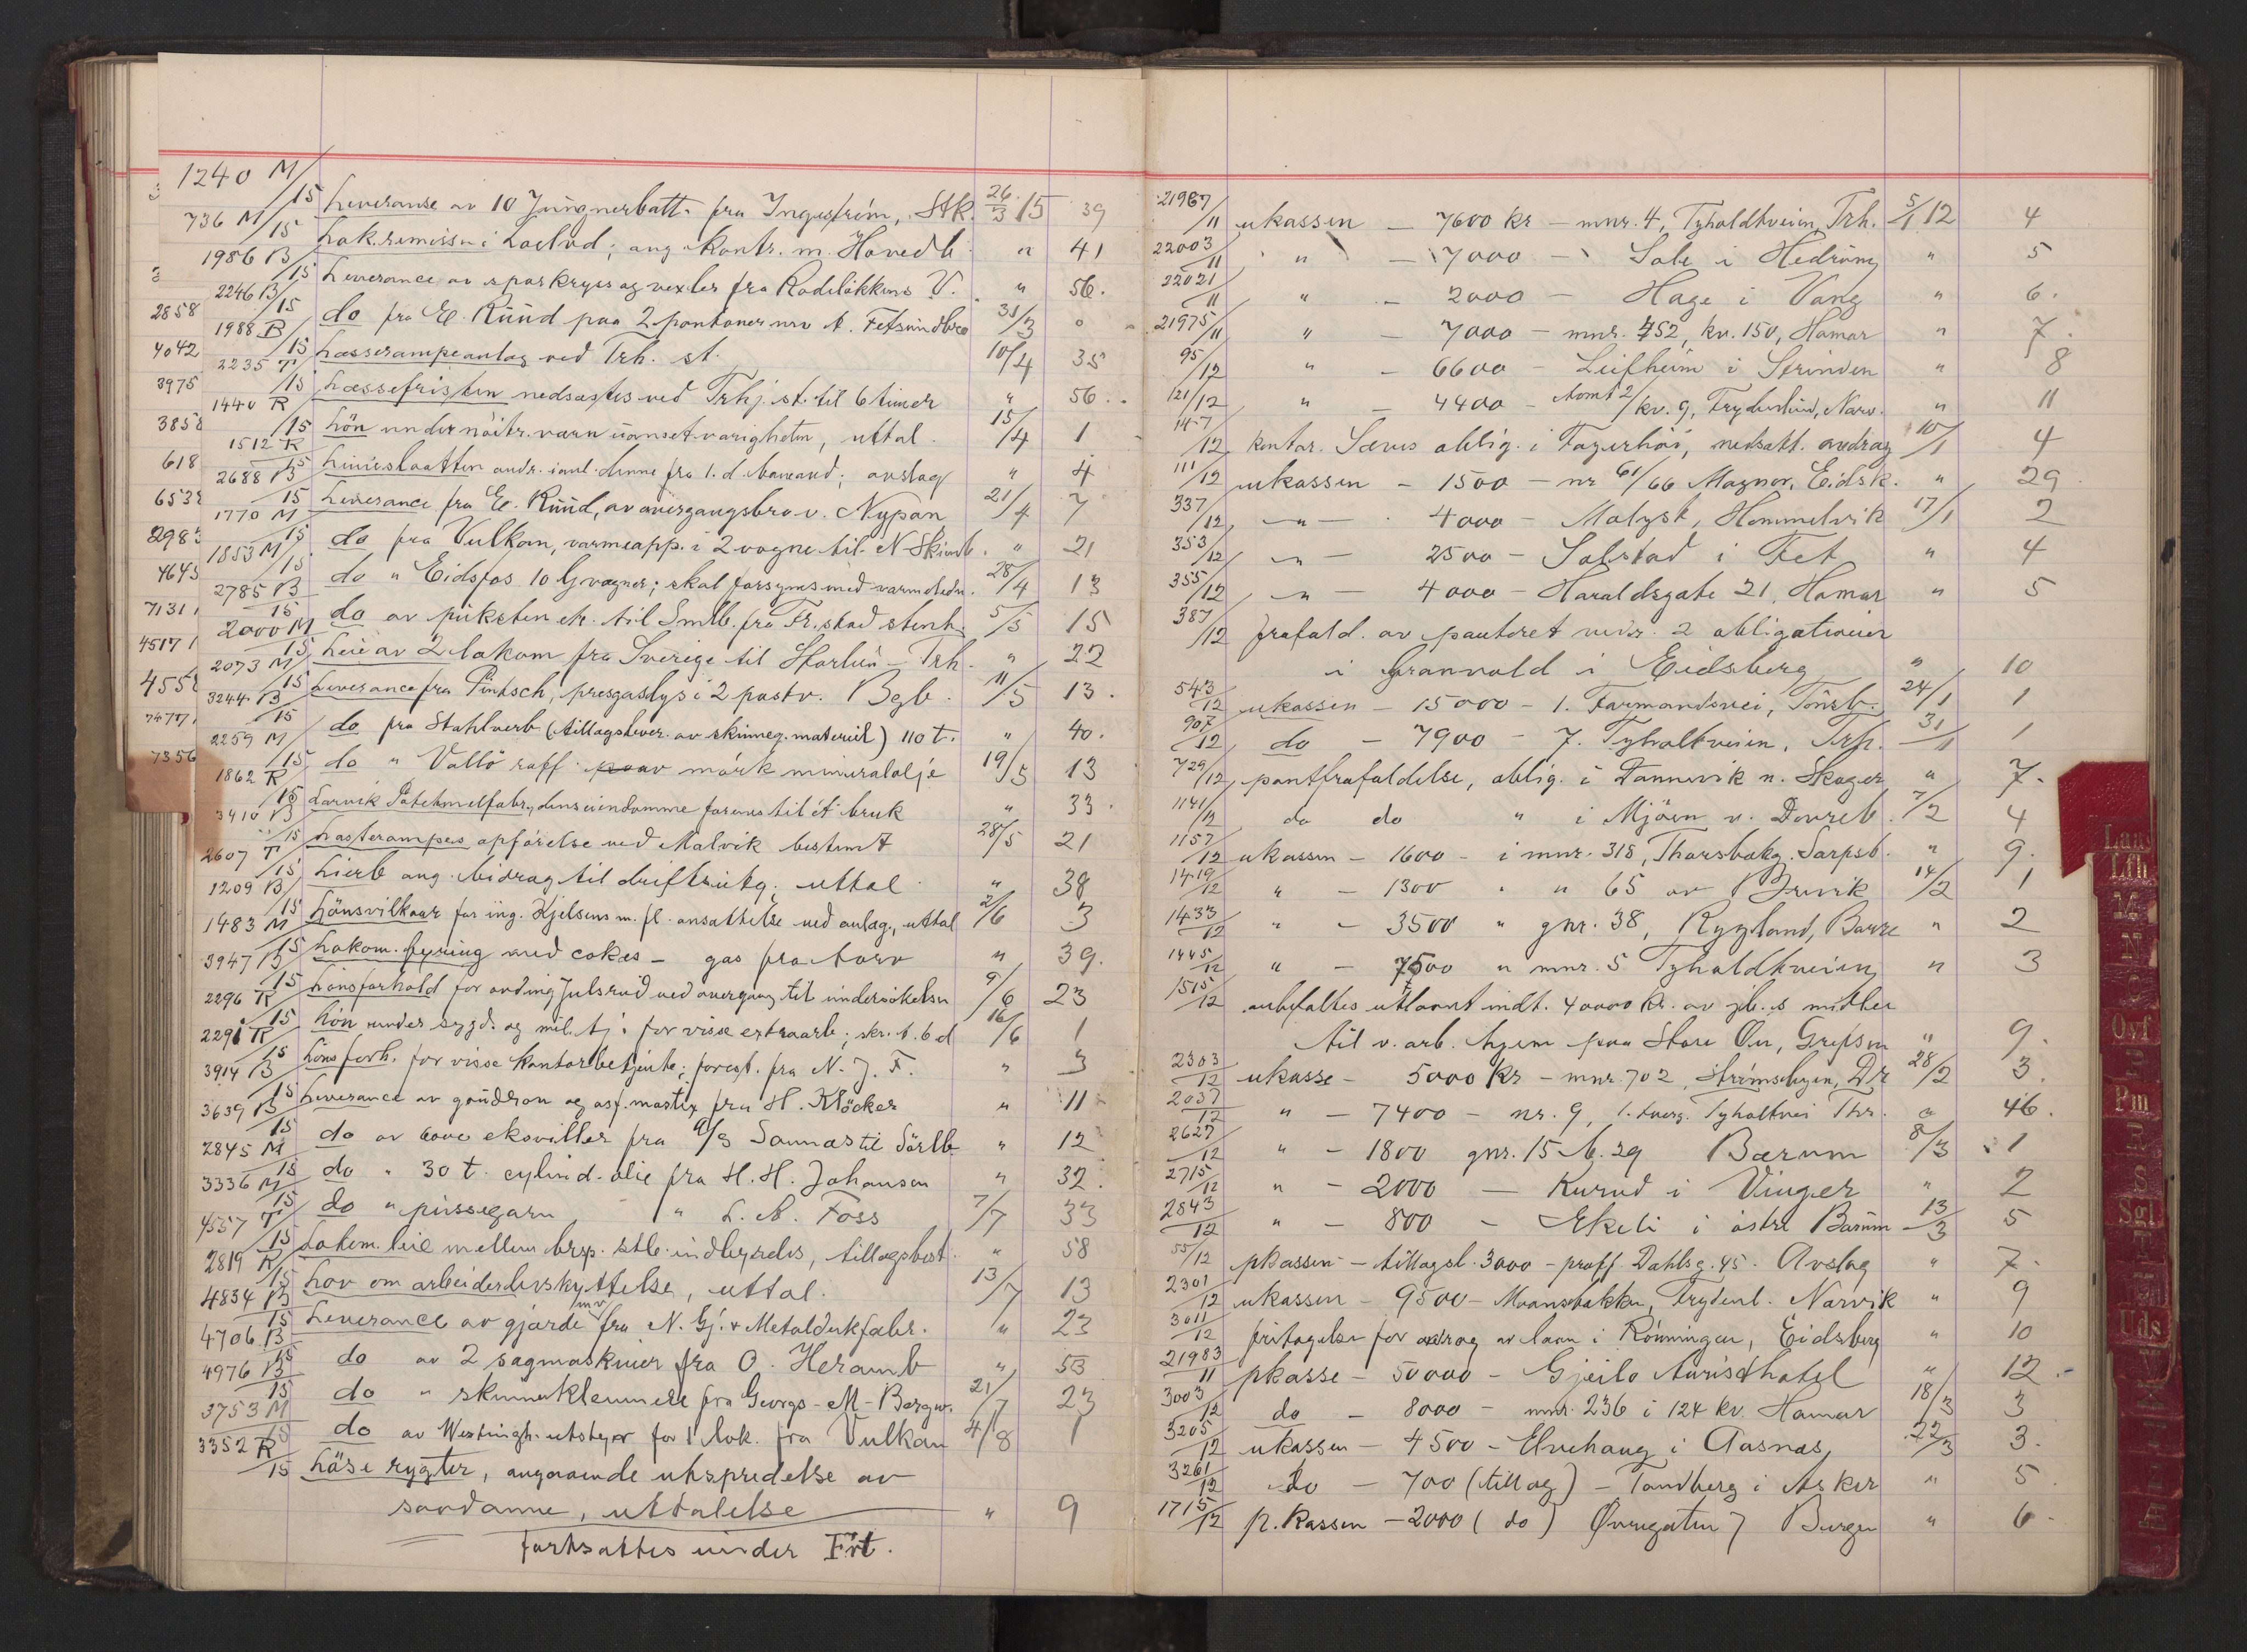 1240 M/15 Leveranse av 10 Jungnerbatt. fra Ingeström, Stk. 26/3 15 39
736 M/15 Lok.remisse i ang. kontr. m. Høvedb. " 41
1986 B/15 Leverance av sporkryss og vexler fra Rodeløkkens V. " 56.
2246 B/15 do fra E. Ruud paa 2 pontoner nrv t. Fetsundbro 31/3 0
1988 B/15 Læsserampeanlæg ved Trh. st. 10/4 35
2235 T/15 Læssefristen nedsættes ved Trhj. st. til 6 timer " 56.
1440 R/15 Lön under nöitr.værn uanset varigheten, uttal. 15/4 1
1512 R/15 Linieslaatten denne fra 1. d. baneavd; avslag " 4
2688 B/15 Leverance fra E. Ruud, av overgangsbro v. Nypan 21/4 7
1770 M/15 do fra Vulkan, varmeapp. i 2 vogne til N-Skinb. " 21
1853 M/15 do " Eidsfos 10 G vogner; skal forsynes med varmeledn. 28/4 13
2785 B/15 do av puksten etc. til Smlb. fra Fr.stad stenh. 5/5 15
2000 M/15 Leie av 2 lokom fra Sverige til Storlien - Trh. " 22
2073 M/15 Leverance fra Pintsch, presgaslys i 2 postv. Bgb. 11/5 13.
3244 B/15 do fra Stahlverb (tillægslever. av skinneg. materiel) 110 t. " 40.
2259 M/15 do " Vallö raff. av mörk mineralolje 19/5 13
1862 R/15 Larvik Potetmelfabr, dens eiendomme forenes til ét bruk " 33.
3410 B/15 Lasterampes opförelse ved Malvik bestemt 28/5 21
2607 T/15 Lierb ang. bidrag til driftsutg; uttal " 38
1209 B/15 Lönsvilkaar for ing. Kjelsens m. fl. ansættelse ved anlæg, uttal 2/6 3
1483 M/15 Lokom. fyring med cokes - gas fra torv " 39.
3947 B/15 Lönsforhold for avding Julsrud ved overgang til undersökelsen 9/6 23
2296 R/15 Lön under sygd. og mil. tj. for visse extraarb; skr. t. 6 d 16/6 1
2291 R/15 Löns forh. for visse kontorbetjente; forest. fra N. J. F. " 3
3914 B/15 Leverance av goudron og asf. mastix fra H. Klöcker " 11
3639 B/15 do av 6000 eksviller fra A/S Sannæs til Sörlb " 12
2845 M/15 do " 30 t. cylind. olie fra H. H. Johansen " 32.
3336 M/15 do " pussegarn " L. A. Foss 7/7 33
4557 T/15 Lokom. leie mellem brsp. stb. indbyrdes, tillægsbest. " 58
2819 R/15 Lov om arbeiderbeskyttelse, uttal. 13/7 13
4834 B/15 Leverance av gjærde mv fra N. Gj. & Metaldukfabr. " 23
4706 B/15 do av 2 sagmaskiner fra O. Heramb " 53
4976 B/15 do " skinneklemmere fra Georgs - M - Bergw. 21/7 23
3753 M/15 do av Westingh. utstyr for 1 lok. fra Vulkan 4/8 1
3352 R/15 Löse rygter, angaaende utspredelse av
saadanne, uttalelse " 9
fortsættes under Frt.
2858
4042
3975
3858
618
6538
2983
4645
7131
4517
4558
7477
7356
21967/11 ukassen - 7600 kr - mnr. 4, Tyholdtveien, Trh. 5/1 12 4
22003/11 " - 7000 - Sole i Hedrum " 5
22021/11 " - 2000 - Hage i Vang " 6.
21975/11 " - 7000 - mnr. 752, kv. 150, Hamar " 7.
95/12 " - 6600 - Leifheim i Strinden " 8
121/12 " - 4400 - tomt 2/kv. 9, Frydenlund, Narv. " 11
147/12 kontor. Sæves oblig. i Fagerhöi, nedsatt. avdrag 10/1 4
111/12 ukassen - 1500 - nr 61/66 Magnor, Eidsk. " 29
337/12 -"- 4000 - Malysk, Hommelvik 17/1 2
353/12 -"- 2500 - Solstad i Fet " 4
355/12 -"- 4000 - Haraldsgate 21, Hamar " 5
387/12 frafald. av panteret vedr. 2 obligationer
i Granvold i Eidsberg " 10
543/12 ukassen - 15000 - 1. Farmandsvei, Tönsb. 24/1 1
907/12 do - 7900 - 7. Tyholtveien, Trh. 31/1 1
729/12 pantfrafaldelse, oblig. i Dannevik n. Skoger " 7.
1141/12 do do " i Mjöen v. Dovreb. 7/2 4
1157/12 ukassen - 1600 - i mnr. 318, Thorsbakg. Sarpsb. " 9.
1419/12 " - 1300 " " 65 av Brevik 14/2 1
1433/12 " - 3500 " gnr. 38, Rygland, Borre " 2
1445/12 " - 7500 " mnr. 5 Tyholdtveien " 3
1515/12 anbefaltes utlaant indt. 40000 kr. av jb.s midler
til v. arb. hjem paa Store Øen, Grefsen " 9.
2303/12 ukasse - 5000 kr - mnr. 702, Strömsbyen, Dr 28/2 3.
2037/12 " - 7400 - nr. 9, 1. tverg. Tyholtvei Thr. " 46.
2627/12 " - 1800 gnr. 15 b. 29 Bærum 8/3 1
2715/12 " - 2000 - Kurud i Vinger " 2
2843/12 " - 800 - Ekeli i östre Bærum 13/3 5
55/12 pkassen - tillægsl. 3000 - proff. Dahlsg. 45. Avslag " 7.
2301/12 ukassen - 9500 - Moansbakken, Frydenl. Narvik " 9
3011/12 fritagelse for avdrag av laan i Rönningen, Eidsberg " 10
21983/11 pkasse - 50000 - Gjeilo turisthotel " 12.
3003/12 do - 8000 - mnr. 236 i 124 kv. Hamar 18/3 3
3205/12 ukassen - 4500 - Elvehaug i Aasnæs 22/3 3.
3261/12 do - 700 (tillæg) - Tandberg i Asker " 5
1715/12 p. kassen - 2000 (do) Øvregaten 7 Bergen " 6
Lfh
M
N
Ovf
Pm
S
Sgl
Uds
Æ